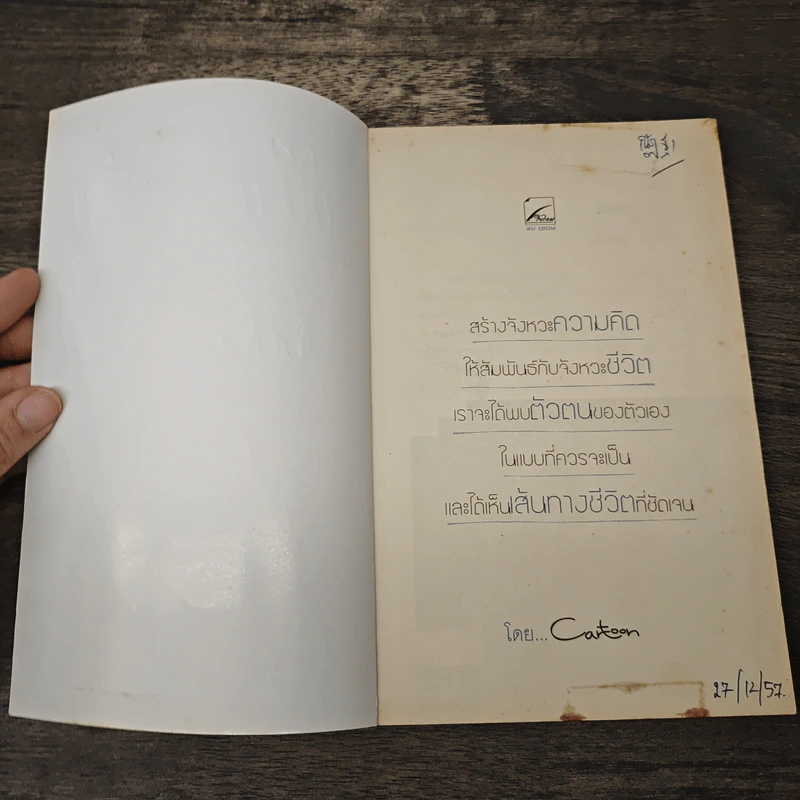 SELF EDITION
สร้างจังหวะความคิด
ให้สัมพันธ์กับจังหวะชีวิต
เราจะได้พบตัวตนของตัวเอง
ในแบบที่ควรจะเป็น
และได้เห็นเส้นทางชีวิตที่ชัดเจน
โดย... Cartoon
27/12/57.